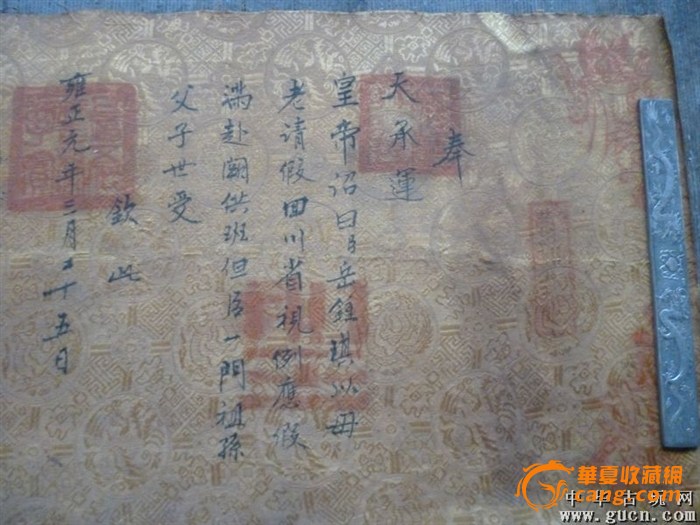 奉
天承運
皇帝詔曰臣岳鍾琪以母
老請假回川省視例應假
滿赴闕供班但臣一門祖孫
父子世受
欽此
雍正元年三月二十五日
華夏收藏網
cang.com
中华古玩网
www.gucn.com